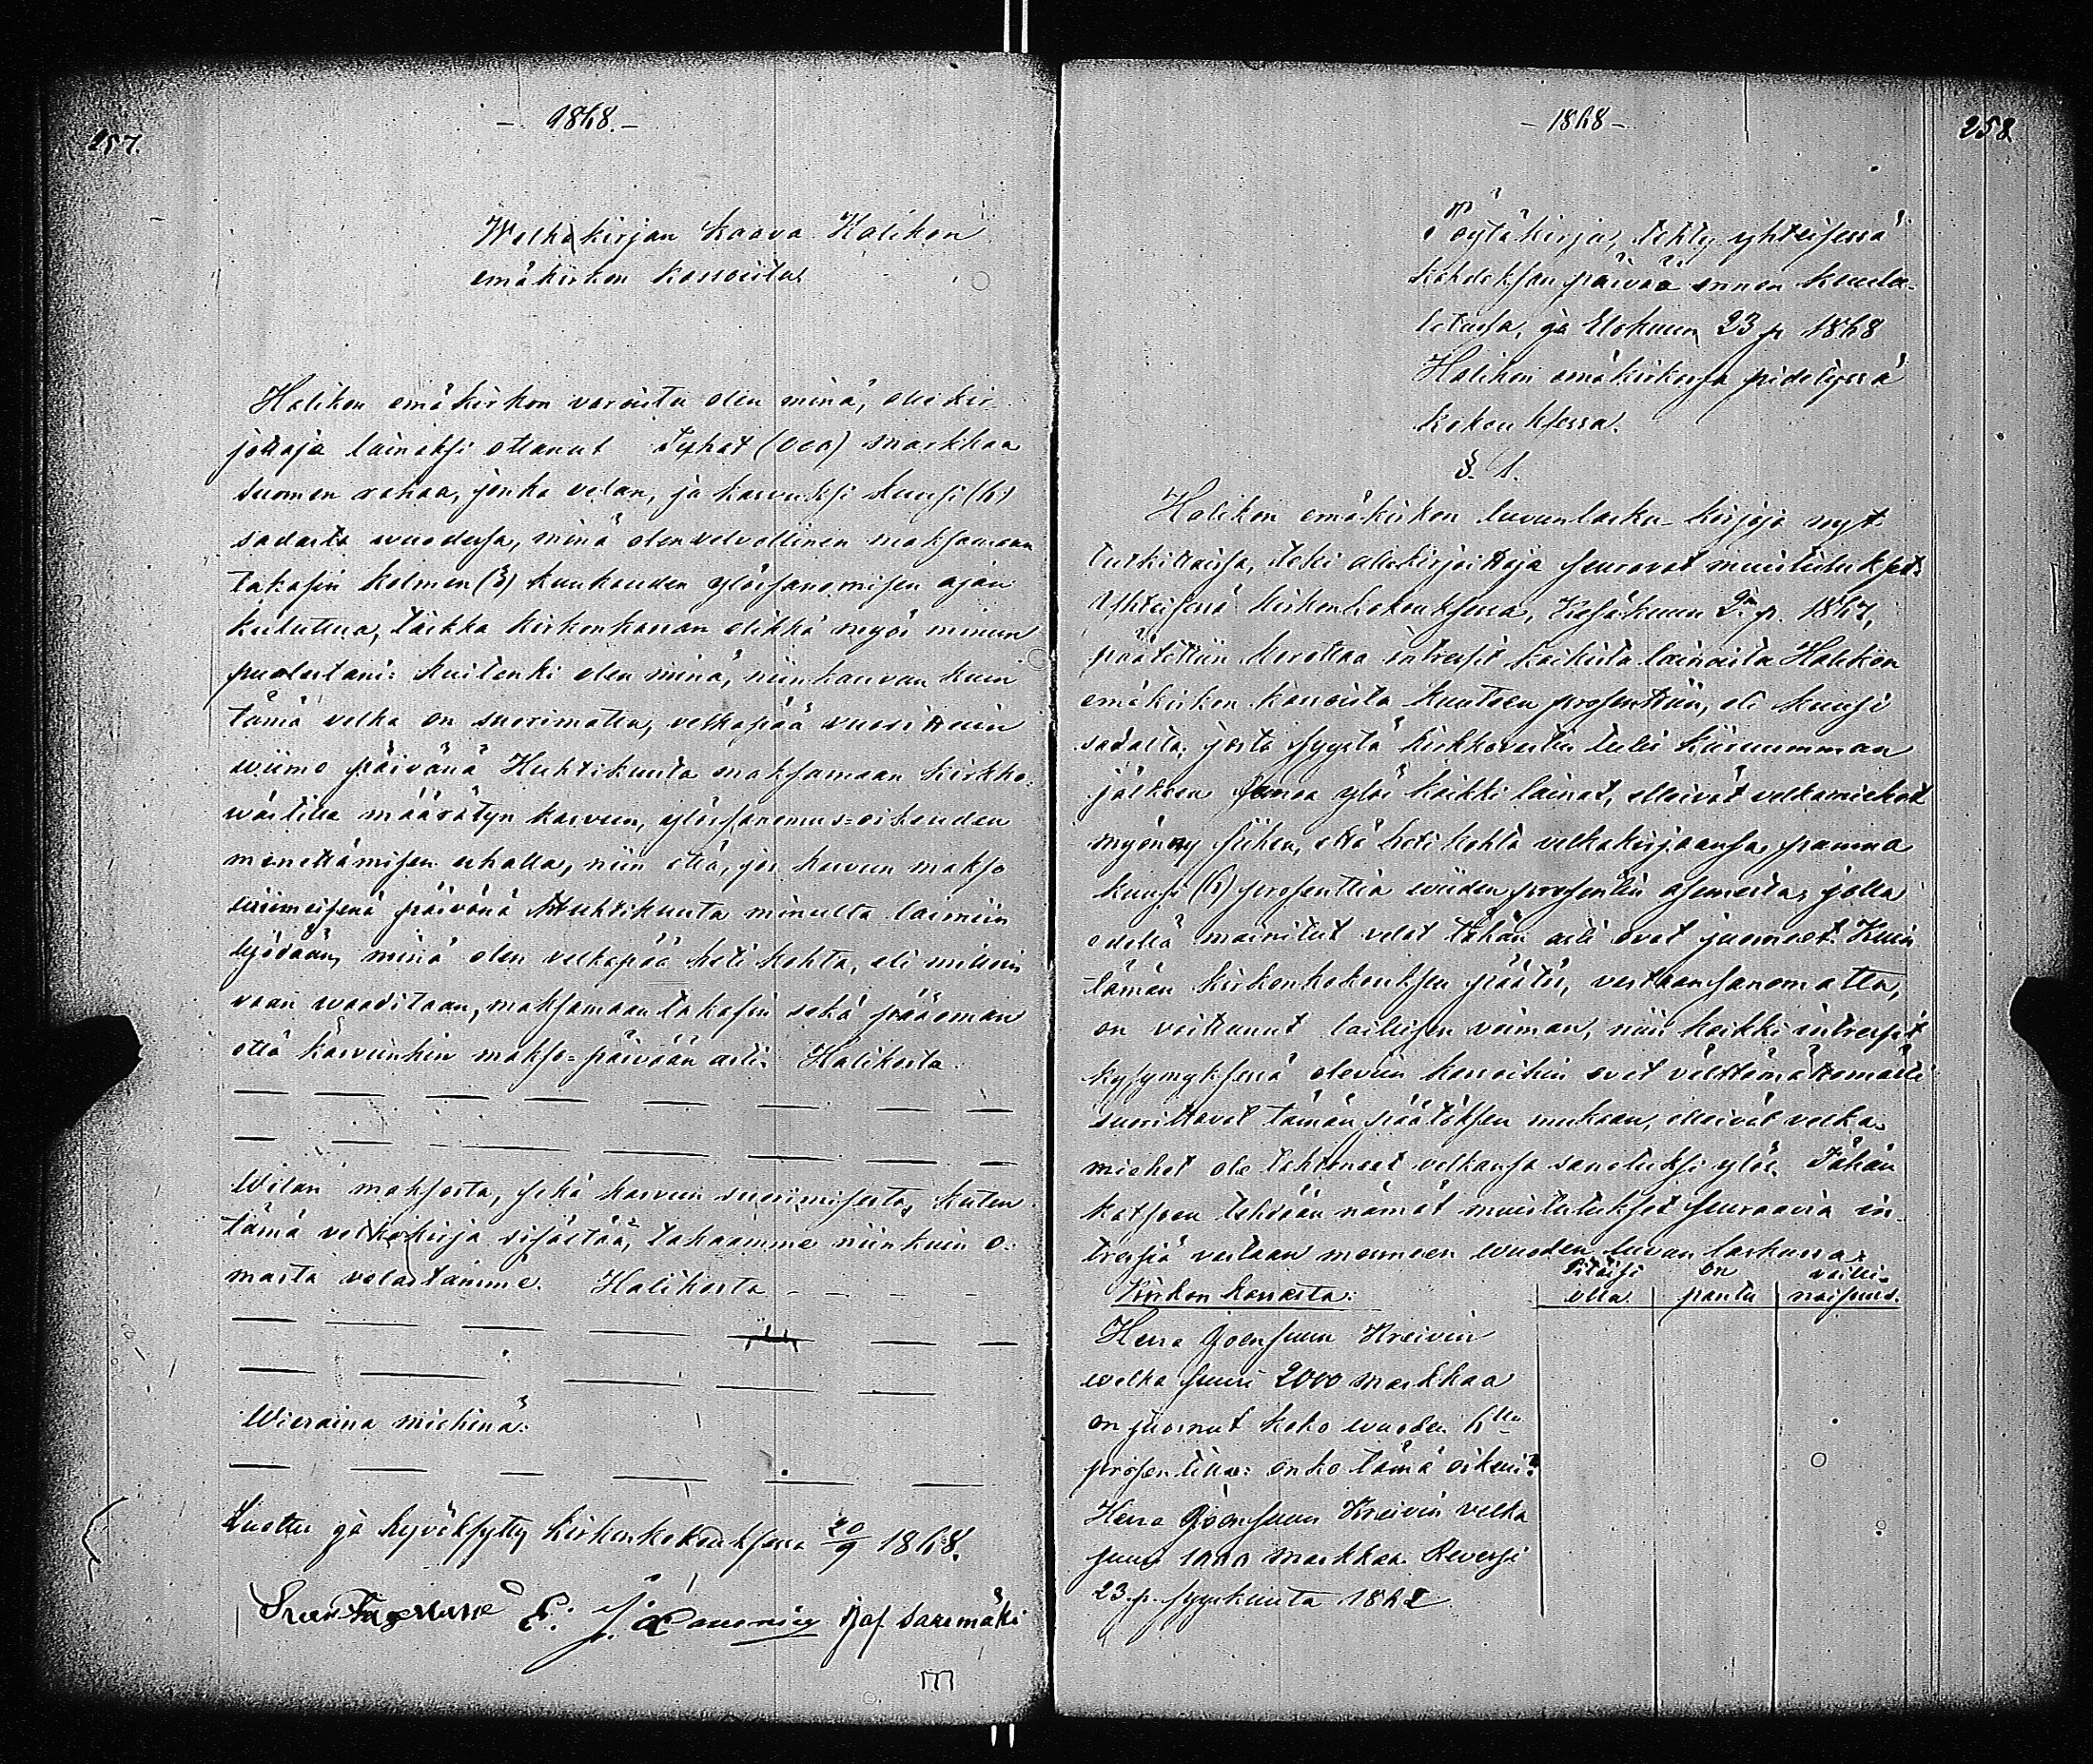 257.
- 1868. -
Welkakirjan kaava Halikon
emäkirkon kassoista.
Halikon emäkirkon varoista olen minä, allekir-
joittaja lainaksi ottanut (000) markkaa
Suomen rahaa, jonka velan, ja kasvuksi kuusi (6)
sadasta wuodessa, minä olen velvollinen maksamaan
takasin kolmen (3) kuukauden ylössanomisen ajan
kuluttua, taikka kirkonkassan elikkä myös minun
puolestani: kuitenki olen minä, niinkauvan kuin
tämä velka on suorimatta, velkapää vuosittain
wiime päivänä Huhtikuuta maksamaan kirkko-
wärtille määrätyn kasvun, ylössanomus-oikeuden
menettämisen uhalla, niin että, jos kasvun makso
viimeisenä päivänä Huhtikuuta minulta laimiin
lyödään, minä olen velkapää heti kohta, eli milloin
vaan waaditaan, maksamaan takasin sekä pääoman
että kasvunkin makso-päivään asti. Halikosta
Welan maksosta, sekä kasvun suorimisesta, kuten
tämä velkakirja sisästää, takaamme niinkuin o-
masta velastamme. Halikosta
Wieraina miehinä:
Luettu ja hyväksytty kirkonkokouksessa 20/9 1868.
E. J. Jos. Saremäki
258
- 1868 -
Pöytäkirja, tehty yhteisessä
kahdeksan päivää ennen kuulu-
tetussa, ja Elokuun 23 p. 1868
Halikon emäkirkossa pidetyssä
kokouksessa.
§. 1.
Halikon emäkirkon luvunlasku-kirjoja nyt
tutkittaissa, teki allekirjoittaja seuravat muistutukset.
Yhteisessä kirkonkokouksessa, Kesäkuun 2. p. 1867,
päätettiin korottaa intressit kaikista lainoista Halikon
emäkirkon kassoista kuuteen prosenttiin, eli kuusi
sadasta; josta syystä kirkkovärtin tulis kiiruumman
jälkeen sanoa ylös kaikki lainat, elleivät velkamiehet
myönny siihen, että heti kohta velkakirjaansa panna
kuusi (6) prosenttia wiiden prosentin asemesta, jolla
edellä mainitut velat tähän asti ovat juosneet. Kuin
tämän kirkonkokouksen päätös, vastaansanomatta,
on voittanut laillisen voiman, niin kaikki intressit
kysymyksessä oleviin kassoihin ovat välttämättömästi
suorittavat tämän päätöksen mukaan, elleivät velka-
miehet ole tahtoneet velkansa sanotuksi ylös. Tähän
katsoen tehdään nämät muistutukset seuraavia in-
tressiä vastaan menneen wuoden luvun laskussa:
Kirkon kassasta: Pitäisi olla. On pantu vailli- naisuus.
Herra Joensuun Kreivin
velka suuri 2000 markkaa
on juosnut koko wuoden 6lla
prosentilla: onko tämä oikein?
Herra Joensuun Kreivin velka
suuri 1000 markkaa. Reversi
23. p. Syyskuuta